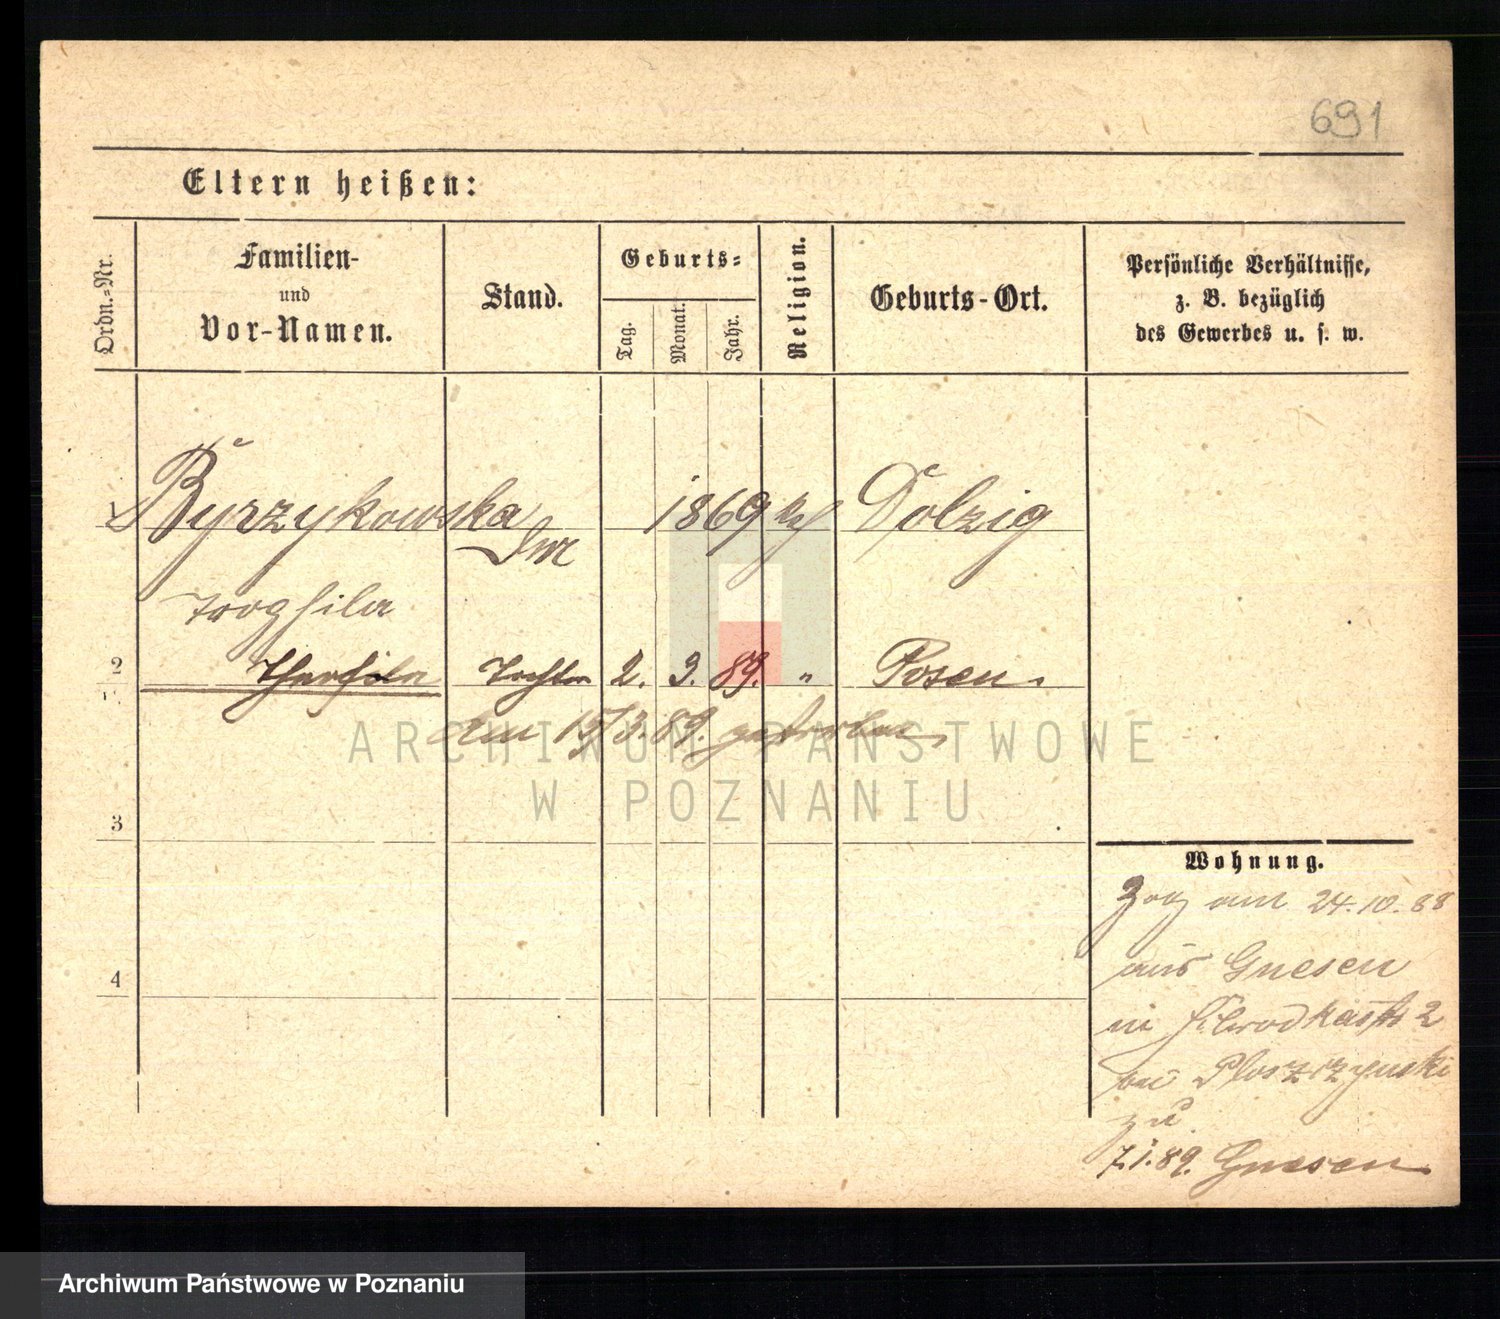 691
Eltern heißen:
Ordn.-Nr.
Familien-
und
Vor-Namen.
Stand.
Geburts-
Tag.
Monat.
Jahr.
Religion.
Geburts-Ort.
Persönliche Verhältnisse,
z. B. bezüglich
des Gewerbes u. s. w.
1 Byrzykowska 1869 Dolzig
2 Tochter 2. 3. 89. " Posen.
am 15/3. 89. gestorben.
3
4
Wohnung.
Zog am 24.10.88
aus Gnesen
in 2
bei
zu
7.1.89. Gnesen
ARCHIWUM PAŃSTWOWE
W POZNANIU
Archiwum Państwowe w Poznaniu